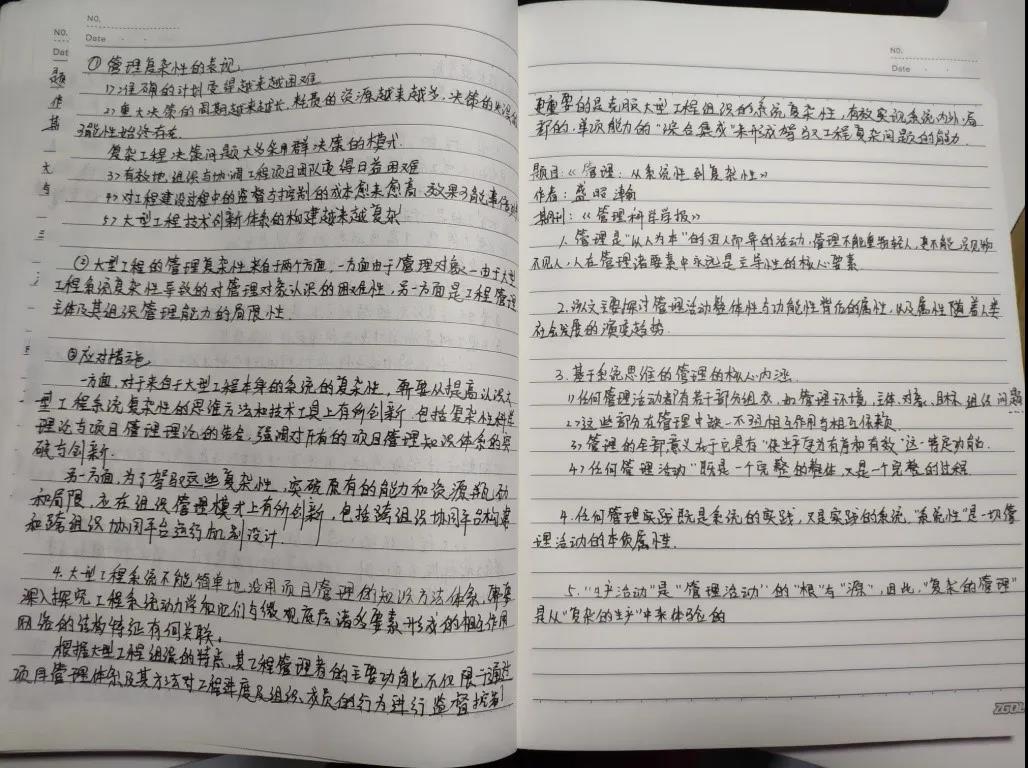 NO.
Date
① 管理复杂性的表现
1>准确的计划变得越来越困难
2>重大决策的周期越来越长,耗费的资源越来越多,决策的失误的
可能性始终存在
复杂工程决策问题大多采用群决策的模式.
3>有效地组织与协调工程项目团队变得日益困难
4>对工程建设过程中的监督与控制的成本愈来愈高,效果可能事倍
5>大型工程技术创新体系的构建越来越复杂
②大型工程的管理复杂性来自于两个方面,一方面由于(管理对象)一由于大型
工程系统复杂性导致的对管理对象认识的困难性,另一方面是工程管理
主体及其组织管理能力的局限性.
③应对措施
一方面,对于来自于大型工程本身的系统的复杂性,需要从提高认识大
型工程系统复杂性的思维方法和技术工具上有所创新,包括复杂性科学
理论与项目管理理论的结合,强调对所有的项目管理知识体系的突
破与创新.
另一方面,为了驾驭这些复杂性,突破原有的能力和资源瓶颈
和局限,应在组织管理模式上有所创新,包括跨组织协同平台构建
和跨组织协同平台运行机制设计.
4.大型工程系统不能简单地沿用项目管理的知识方法体系,需要
深入探究工程系统动力学和它们与微观底层诸多要素形成的相互作用
网络的结构特征有何关联.
根据大型工程组织的特点,其工程管理者的主要功能不仅限于通过
项目管理体系及其方法对工程进度及组织成员的行为进行监督控制
NO.
Dat
题
作
期
NO.
Date
更重要的是克服大型工程组织的系统复杂性,有效实现系统内外,局
部的,单项能力的“综合集成”来形成驾驭工程复杂问题的能力.
题目:《管理:从系统性到复杂性》
作者:盛昭瀚
期刊:《管理科学学报》
1.管理是“以人为本”的因人而异的活动,管理不能重物轻人,更不能见物
不见人,人在管理诸要素中永远是主导性的核心要素.
2.该文主要探讨管理活动整体性与功能性背后的属性,以及属性随着人类
社会发展的演变趋势.
3.基于系统思维的管理的核心内涵.
1>任何管理活动都有若干部分组成,如管理环境,主体,对象,目标,组织,问题
2>这些部分在管理中缺一不可相互作用与相互依赖.
3>管理的全部意义在于它具有“使生产变为有序和有效”这一特定功能.
4>任何管理活动“既是一个完整的整体,又是一个完整的过程
4.任何管理实践既是系统的实践,又是实践的系统,“系统性”是一切管
理活动的本质属性.
5.“生产活动”是“管理活动”的“根”与“源”,因此,“复杂的管理”
是从“复杂的生产”中来体验的